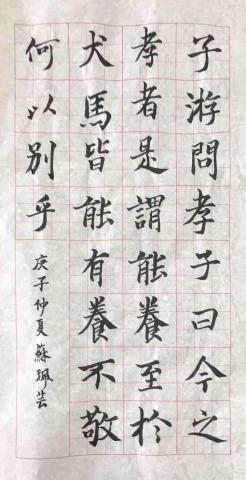 子游問孝子曰今之
孝者是謂能養至於
犬馬皆能有養不敬
何以別乎
庚子仲夏蘇珮芸